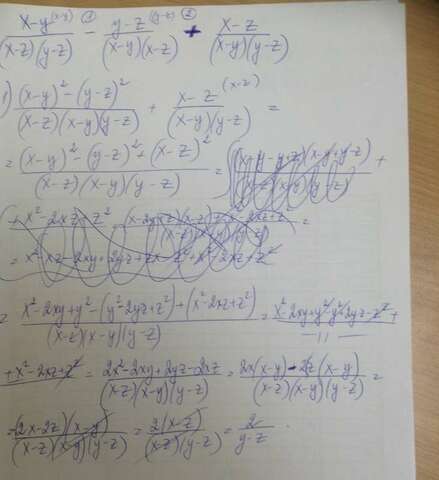 x-y^(x-y) ① / (x-z)(y-z) - y-z^(y-z) ② / (x-y)(x-z) + x-z / (x-y)(y-z)
1) (x-y)² - (y-z)² / (x-z)(x-y)(y-z) + x-z^(x-z) / (x-y)(y-z) =
= (x-y)² - (y-z)² + (x-z)² / (x-z)(x-y)(y-z) =
+ x² - 2xz + z²
= x² - xz - 2xy + 2yz + zx - z² + x² - 2xz + z²
= x² - 2xy + y² - (y² - 2yz + z²) + (x² - 2xz + z²) / (x-z)(x-y)(y-z) = x² - 2xy + y² - y² + 2yz - z² + / -||-
+ x² - 2xz + z² = 2x² - 2xy + 2yz - 2xz / (x-z)(x-y)(y-z) = 2x(x-y) - 2z(x-y) / (x-z)(x-y)(y-z) =
= (2x-2z)(x-y) / (x-z)(x-y)(y-z) = 2(x-z) / (x-z)(y-z) = 2 / y-z .